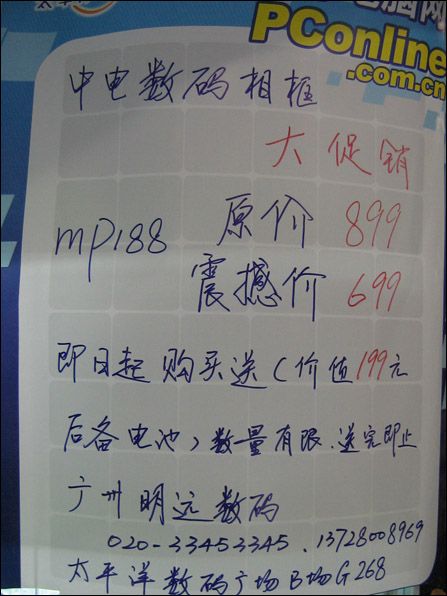 电脑网
PConline
.com.cn
中电数码相框
大促销
mp188 原价 899
震撼价 699
即日起购买送(价值199元
后备电池)数量有限、送完即止
广州明远数码
020-33453345、13728008969
太平洋数码广场B场G268